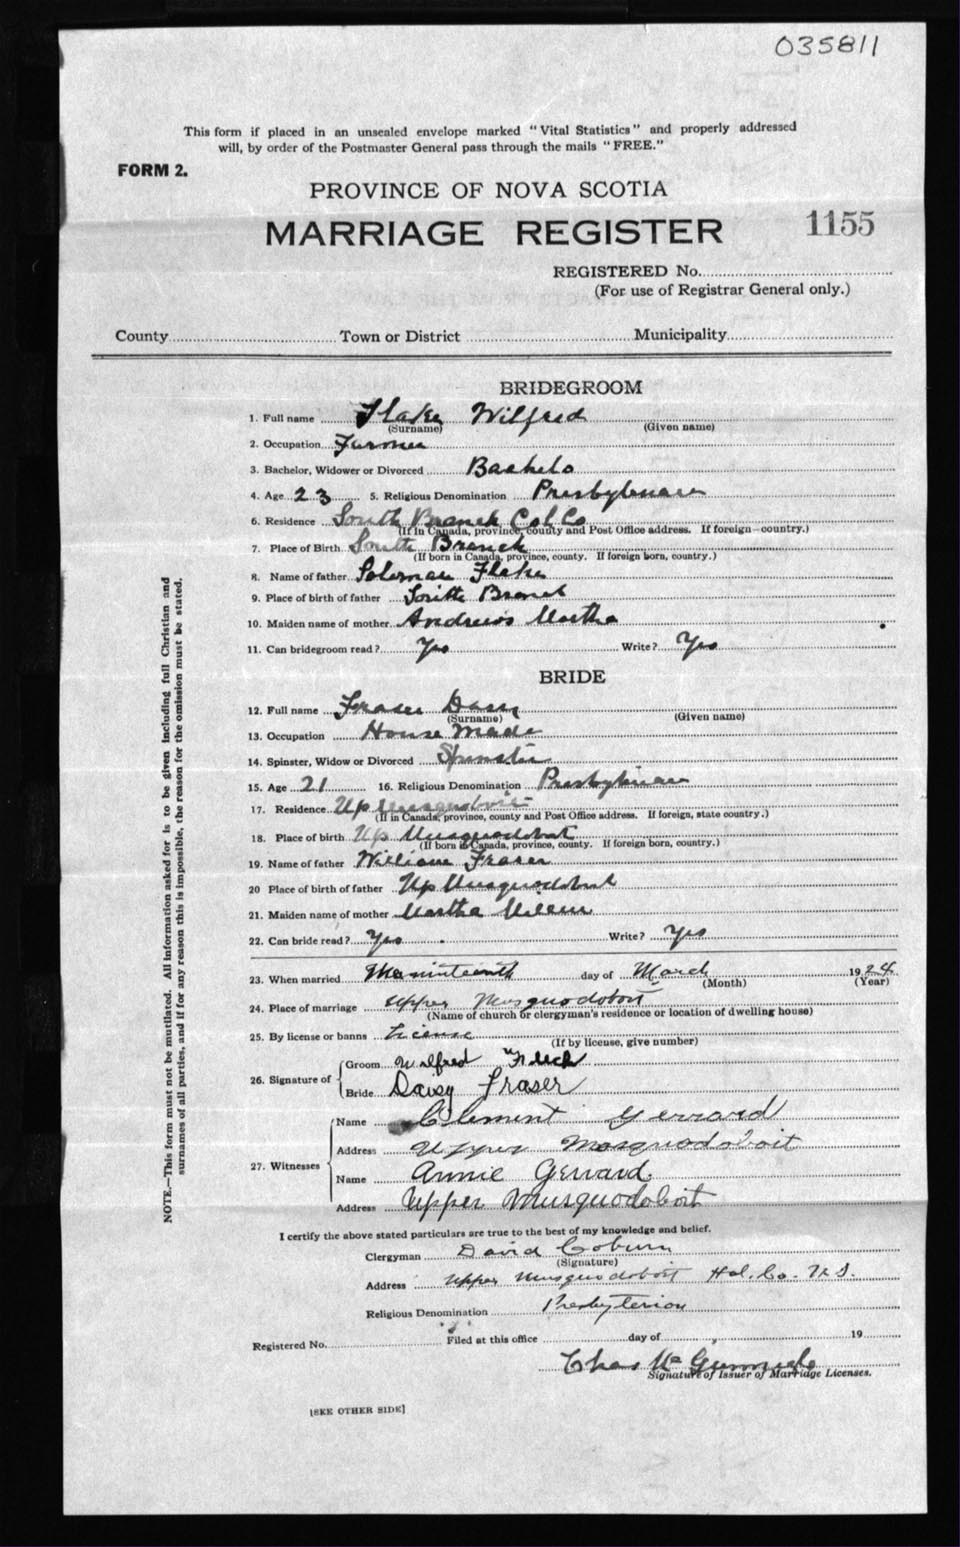 035811
This form if placed in an unsealed envelope marked "Vital Statistics" and properly addressed
will, by order of the Postmaster General pass through the mails "FREE."
FORM 2.
PROVINCE OF NOVA SCOTIA
MARRIAGE REGISTER 1155
REGISTERED No.
(For use of Registrar General only.)
County Town or District Municipality
BRIDEGROOM
1. Full name Flake Wilfred
(Surname) (Given name)
2. Occupation Farmer
3. Bachelor, Widower or Divorced Bachelo
4. Age 23 5. Religious Denomination Presbyterian
6. Residence South Branch Col Co
(If in Canada, province, county and Post Office address. If foreign country.)
7. Place of Birth South Branch
(If born in Canada, province, county. If foreign born, country.)
8. Name of father Soloman Flake
9. Place of birth of father South Branch
10. Maiden name of mother Andrews Martha
11. Can bridegroom read? Yes Write? Yes
BRIDE
12. Full name Fraser Daisy
(Surname) (Given name)
13. Occupation House Made
14. Spinster, Widow or Divorced Spinster
15. Age 21 16. Religious Denomination Presbyterian
17. Residence Up Musquodoboit
(If in Canada, province, county and Post Office address. If foreign, state country.)
18. Place of birth Up Musquodoboit
(If born in Canada, province, county. If foreign born, country.)
19. Name of father William Fraser
20 Place of birth of father Up Musquodoboit
21. Maiden name of mother Martha
22. Can bride read? Yes Write? Yes
23. When married day of March 1924
(Month) (Year)
24. Place of marriage Upper Musquodoboit
(Name of church or clergyman's residence or location of dwelling house)
25. By license or banns License
(If by license, give number)
26. Signature of
Groom Wilfred
Bride Daisy Fraser
27. Witnesses
Name Clement Gerrard
Address Upper Mosquodoboit
Name Annie Gerrard
Address Upper Musquodoboit
I certify the above stated particulars are true to the best of my knowledge and belief.
Clergyman David Coburn
(Signature)
Address Upper Musquodoboit Hal. Co. N.S.
Religious Denomination Presbyterian
Registered No. Filed at this office day of 19
Chas
Signature of Issuer of Marriage Licenses.
[SEE OTHER SIDE]
NOTE.—This form must not be mutilated. All information asked for is to be given including full Christian and
surnames of all parties, and if for any reason this is impossible, the reason for the omission must be stated.